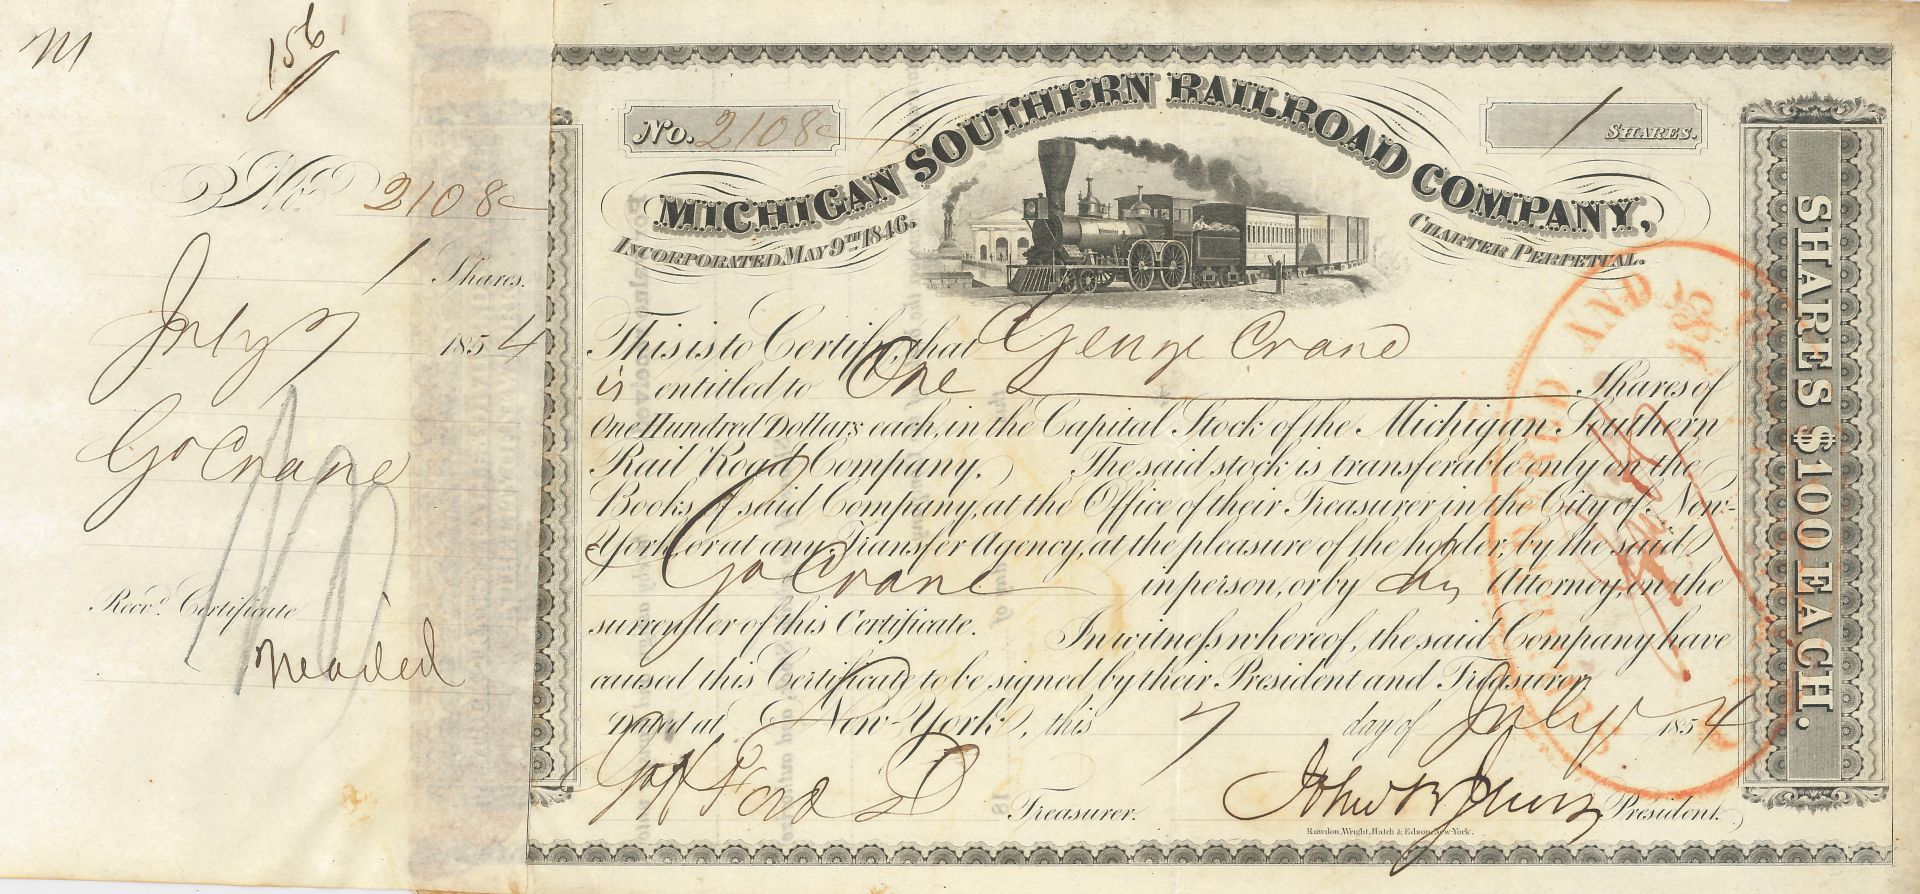 M
156
No. 2108
1 Shares.
July 7 1854
Geo Crane
Recd. Certificate
No. 2108
1 SHARES.
MICHIGAN SOUTHERN RAILROAD COMPANY,
INCORPORATED MAY 9TH 1846.
CHARTER PERPETUAL.
This is to Certify, that George Crane
is entitled to One Shares of
One Hundred Dollars each, in the Capital Stock of the Michigan Southern
Rail Road Company. The said stock is transferable only on the
Books of said Company, at the Office of their Treasurer in the City of New-
York or at any Transfer Agency, at the pleasure of the holder, by the said
Geo Crane in person, or by his Attorney, on the
surrender of this Certificate. In witness whereof, the said Company have
caused this Certificate to be signed by their President and Treasurer
Dated at New-York, this 7 day of July 1854
Treasurer. President.
Rawdon, Wright, Hatch & Edson, New-York.
SHARES $100 EACH.
AND